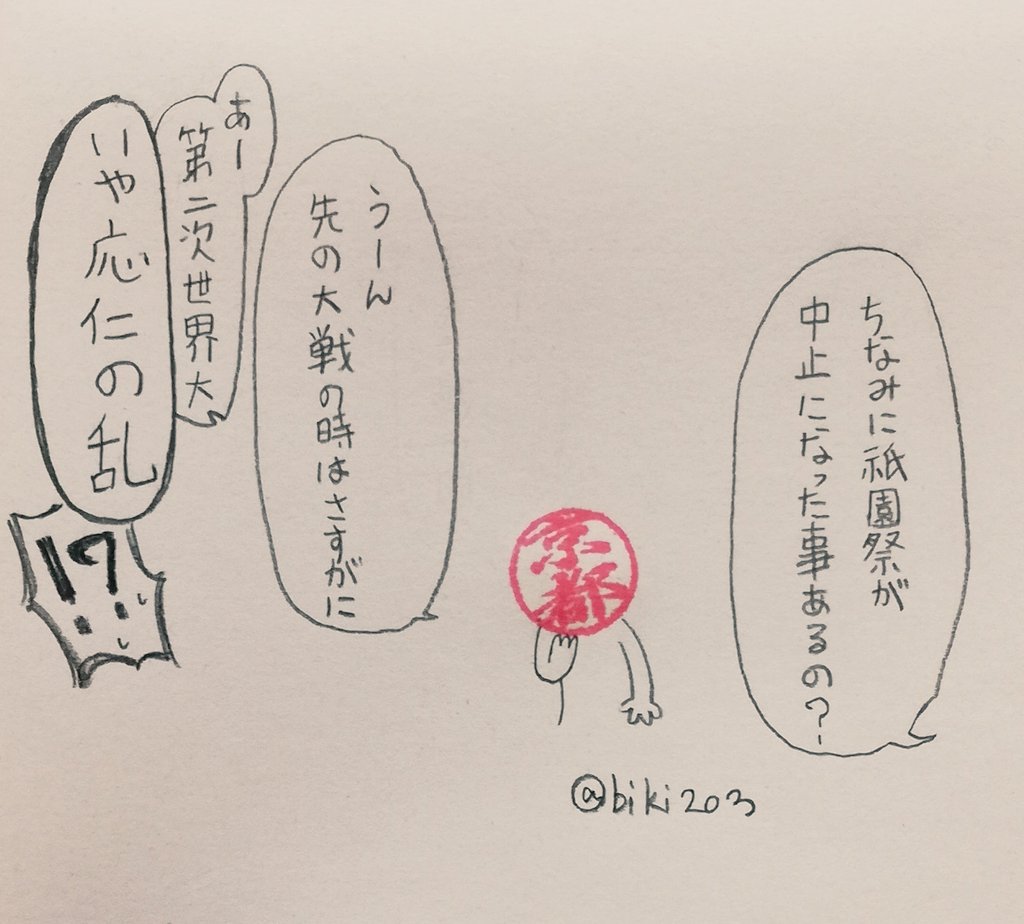 ちなみに祇園祭が
中止になった事あるの?
うーん
先の大戦の時はさすがに
あー
第二次世界大
いや応仁の乱
!?
京都
@biki203